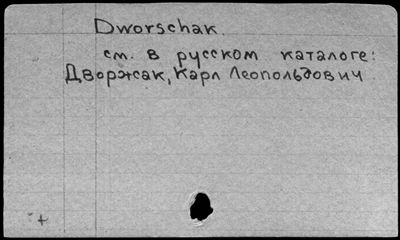 Dworschak.
см. в русском каталоге:
Дворжсак, Карл Леопольдович
+